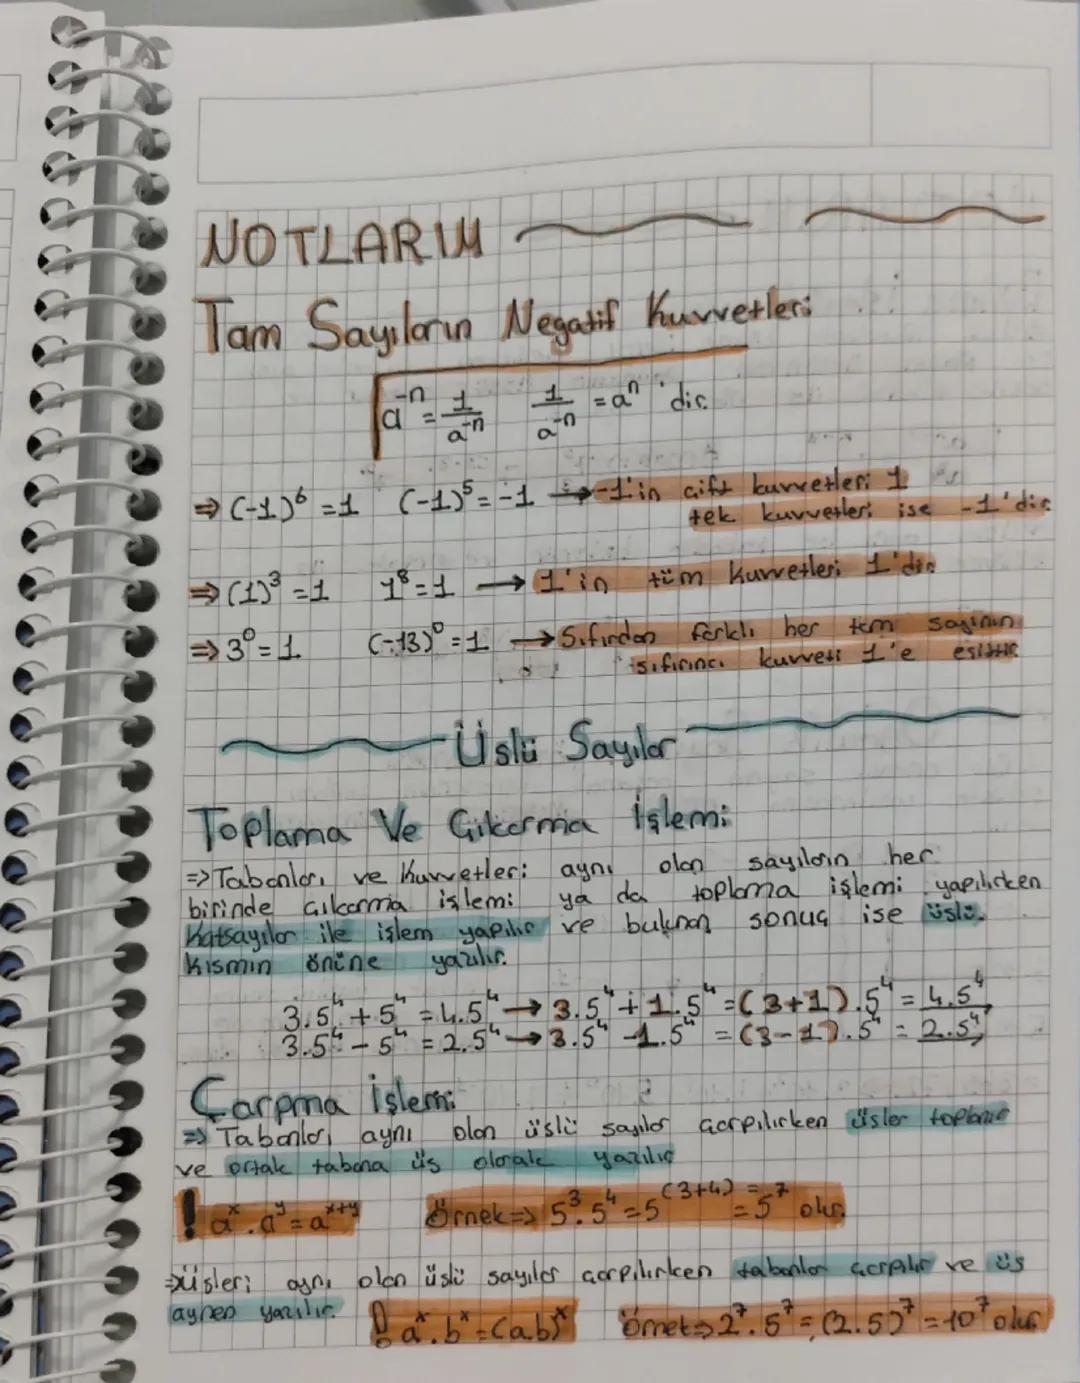 NOTLARIM
Tam Sayıların Negatif Kuvvetleri
a⁻ⁿ = 1/a⁻ⁿ   1/a⁻ⁿ = aⁿ 'dir.
⇒ (-1)⁶ = 1   (-1)⁵ = -1 → -1'in çift kuvvetleri 1
tek kuvvetleri ise -1'dir.
⇒ (1)³ = 1   1⁸ = 1 → 1'in tüm kuvvetleri 1'dir
⇒ 3⁰ = 1   (-13)⁰ = 1 → Sıfırdan farklı her tam sayının
sıfırıncı kuvveti 1'e eşittir.
Üslü Sayılar
Toplama Ve Çıkarma İşlemi
⇒ Tabanları ve Kuvvetleri aynı olan sayıların her
birinde çıkarma işlemi ya da toplama işlemi yapılırken
Katsayılar ile işlem yapılır ve bulunan sonuç ise üslü
kısmın önüne yazılır.
3.5⁴ + 5⁴ = 4.5⁴ → 3.5⁴ + 1.5⁴ = (3+1).5⁴ = 4.5⁴
3.5⁴ - 5⁴ = 2.5⁴ → 3.5⁴ - 1.5⁴ = (3-1).5⁴ = 2.5⁴
Çarpma İşlemi
⇒ Tabanları aynı olan üslü sayılar çarpılırken üsler toplanır
ve ortak tabana üs olarak yazılır
! aˣ.aʸ = aˣ⁺ʸ   Örnek ⇒ 5³.5⁴ = 5⁽³⁺⁴⁾ = 5⁷ olur.
⇒ üsleri aynı olan üslü sayılar çarpılırken tabanlar çarpılır ve üs
aynen yazılır. ! aˣ.bˣ = (a.b)ˣ   Örnek ⇒ 2⁷.5⁷ = (2.5)⁷ = 10⁷ olur